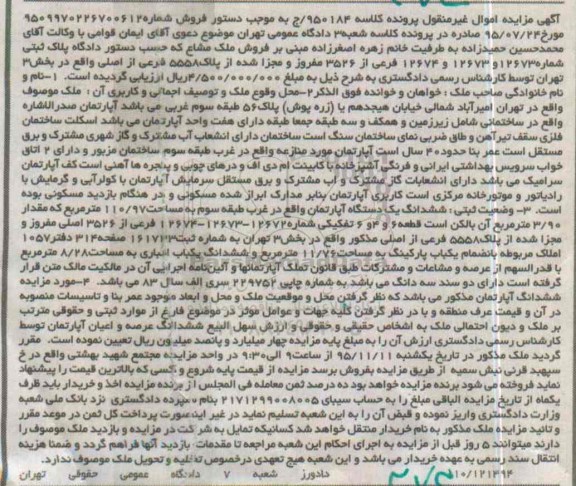 آگهی مزایده اموال غیرمنقول پرونده کلاسه ۹۵۰۱۸۴/ج به موجب دستور فروش شماره ۹۵۰۹۹۷۰۲۲۶۷۰۰۶۱۲
مورخ ۹۵/۰۷/۲۴ صادره در پرونده کلاسه شعبه ۳ دادگاه عمومی تهران موضوع دعوی آقای ایمان قوامی با وکالت آقای
محمدحسین حمیدزاده به طرفیت خانم زهره اصغرزاده مبنی بر فروش ملک مشاع که حسب دستور دادگاه پلاک ثبتی
شماره ۱۲۶۷۲ و ۱۲۶۷۳ و ۱۲۶۷۴ فرعی از ۳۵۲۶ مفروز و مجزا شده از پلاک ۵۵۵۸ فرعی از اصلی واقع در بخش ۳
تهران توسط کارشناس رسمی دادگستری به شرح ذیل به مبلغ ۴/۵۰۰/۰۰۰/۰۰۰ ریال ارزیابی گردیده است. ۱-نام و
نام خانوادگی صاحب ملک: خواهان و خوانده فوق الذکر ۲-محل وقوع ملک و توصیف اجمالی و کاربری آن: ملک موصوف
واقع در تهران امیرآباد شمالی خیابان هیجدهم یا (زره پوش) پلاک ۵۶ طبقه سوم غربی می باشد آپارتمان صدرالاشاره
واقع در ساختمانی شامل زیرزمین و همکف و سه طبقه جمعا طبقه دارای هفت واحد آپارتمان می باشد اسکلت ساختمان
فلزی سقف تیرآهن و طاق ضربی نمای ساختمان سنگ است ساختمان دارای انشعاب آب مشترک و گاز شهری مشترک و برق
مستقل است عمر بنا حدود ۴۰ سال است آپارتمان مورد مزایده واقع در غرب طبقه سوم ساختمان مزبور و دارای ۲ اتاق
خواب سرویس بهداشتی ایرانی و فرنگی آشپزخانه با کابینت ام دی اف و درهای چوبی و پنجره ها آهنی است کف آپارتمان
سرامیک می باشد دارای انشعابات گاز مشترک و آب مشترک و برق مستقل سرمایش آپارتمان با کولرآبی و گرمایش با
رادیاتور و موتورخانه مرکزی است کاربری آپارتمان بنابر مدارک ابراز شده مسکونی و در هنگام بازدید مسکونی بوده
است. ۳- وضعیت ثبتی: ششدانگ یک دستگاه آپارتمان واقع در غرب طبقه سوم به مساحت ۱۱۰/۹۷ مترمربع که مقدار
۳/۹۰ مترمربع آن بالکن است قطعه ۶ و ۴ و ۶ تفکیکی شماره ۱۲۶۷۲-۱۲۶۷۳-۱۲۶۷۴ فرعی از ۳۵۲۶ اصلی مفروز و
مجزا شده از پلاک ۵۵۵۸ فرعی از اصلی مذکور واقع در بخش ۳ تهران به شماره ثبت ۱۶۱۷۱۳ صفحه ۳۱۴ دفتر ۱۰۵۷
املاک مربوطه بانضمام یکباب پارکینگ به مساحت ۱۱/۷۶ مترمربع و ششدانگ یکباب انباری به مساحت ۸/۲۸ مترمربع
با قدرالسهم از عرصه و مشاعات و مشترکات طبق قانون تملک آپارتمانها و آئین نامه اجرایی آن در مالکیت مالک متن قرار
گرفته است دارای دو سند سه دانگ می باشد به شماره چاپی ۲۲۹۷۵۲ سری الف سال ۸۳ می باشد. ۴-مورد مزایده
ششدانگ آپارتمان مذکور می باشد که نظر گرفتن محل و موقعیت ملک و محل و ابعاد موجود عمر بنا و تاسیسات منصوبه
در آن و قیمت عرف منطقه و با در نظر گرفتن کلیه جهات و عوامل موثر در موضوع فارغ از موارد ثبتی و حقوقی مترتب
بر ملک و دیون احتمالی ملک به اشخاص حقیقی و حقوقی و ارزش سهل البیع ششدانگ عرصه و اعیان آپارتمان توسط
کارشناس رسمی دادگستری ارزش آن را به مبلغ پایه مزایده چهار میلیارد و پانصد میلیون ریال تعیین نموده است. مقرر
گردید ملک مذکور در تاریخ یکشنبه ۹۵/۱۱/۱۱ از ساعت ۹ الی ۹:۳۰ در واحد مزایده مجتمع شهید بهشتی واقع در خ
سپهبد قرنی نبش سمیه از طریق مزایده بفروش برسد مزایده از قیمت پایه شروع و کسی که بالاترین قیمت را پیشنهاد
نماید فروخته می شود برنده مزایده خواهد بود ده درصد ثمن معامله فی المجلس از برنده مزایده اخذ و خریدار باید ظرف
یکماه از تاریخ مزایده الباقی مبلغ را به حساب سیبای ۲۱۷۱۲۹۹۰۰۸۰۰۵ بنام سپرده دادگستری نزد بانک ملی شعبه
وزارت دادگستری واریز نموده و قبض آن را به این شعبه تسلیم نماید در غیر اینصورت پرداخت کل ثمن در موعد مقرر
و تائید مزایده ملک مذکور به نام خریدار منتقل خواهد شد کسانیکه تمایل به شرکت در مزایده و بازدید ملک موصوف را
دارند میتوانند ۵ روز قبل از مزایده به اجرای احکام این شعبه مراجعه تا مقدمات بازدید آنها فراهم گردد و ضمنا هزینه
انتقال سند رسمی به عهده خریدار می باشد و این شعبه هیچ تعهدی درخصوص تخلیه و تحویل ملک موصوف ندارد.
۱۱۰/۱۲۱۴۹۴ دادورز شعبه ۷ دادگاه عمومی حقوقی تهران